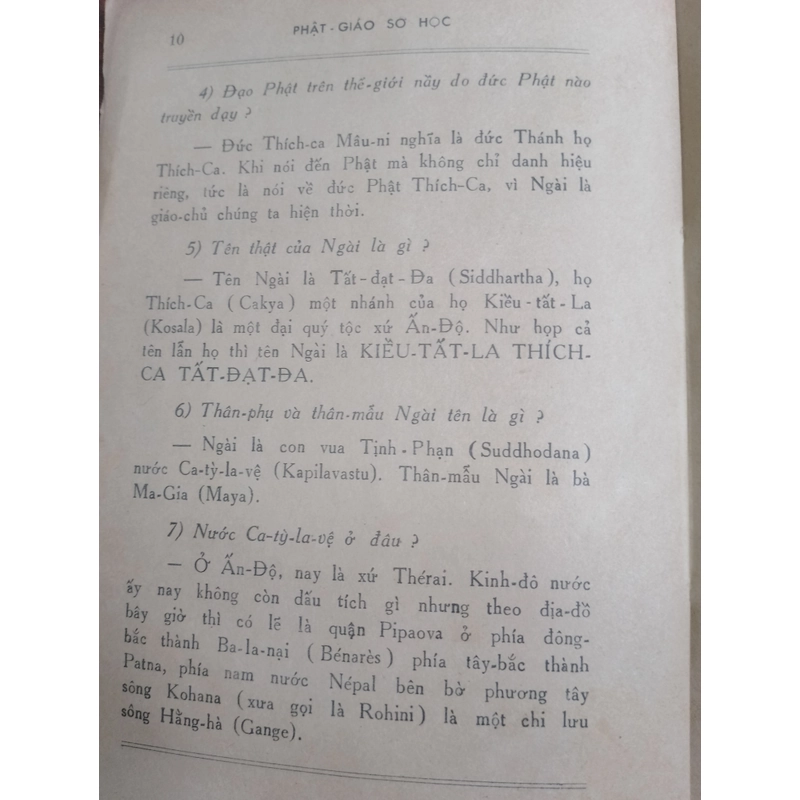 10
PHẬT-GIÁO SƠ HỌC
4) Đạo Phật trên thế-giới nầy do đức Phật nào
truyền dạy ?
— Đức Thích-ca Mâu-ni nghĩa là đức Thánh họ
Thích-Ca. Khi nói đến Phật mà không chỉ danh hiệu
riêng, tức là nói về đức Phật Thích-Ca, vì Ngài là
giáo-chủ chúng ta hiện thời.
5) Tên thật của Ngài là gì ?
— Tên Ngài là Tất-đạt-Đa (Siddhartha), họ
Thích-Ca (Cakya) một nhánh của họ Kiều-tất-La
(Kosala) là một đại quý tộc xứ Ấn-Độ. Như họp cả
tên lẫn họ thì tên Ngài là KIỀU-TẤT-LA THÍCH-
CA TẤT-ĐẠT-ĐA.
6) Thân-phụ và thân-mẫu Ngài tên là gì ?
— Ngài là con vua Tịnh-Phạn (Suddhodana)
nước Ca-tỳ-la-vệ (Kapilavastu). Thân-mẫu Ngài là bà
Ma-Gia (Maya).
7) Nước Ca-tỳ-la-vệ ở đâu ?
— Ở Ấn-Độ, nay là xứ Thérai. Kinh-đô nước
ấy nay không còn dấu tích gì nhưng theo địa-đồ
bây giờ thì có lẽ là quận Pipaova ở phía đông-
bắc thành Ba-la-nại (Bénarès) phía tây-bắc thành
Patna, phía nam nước Népal bên bờ phương tây
sông Kohana (xưa gọi là Rohini) là một chi lưu
sông Hằng-hà (Gange).